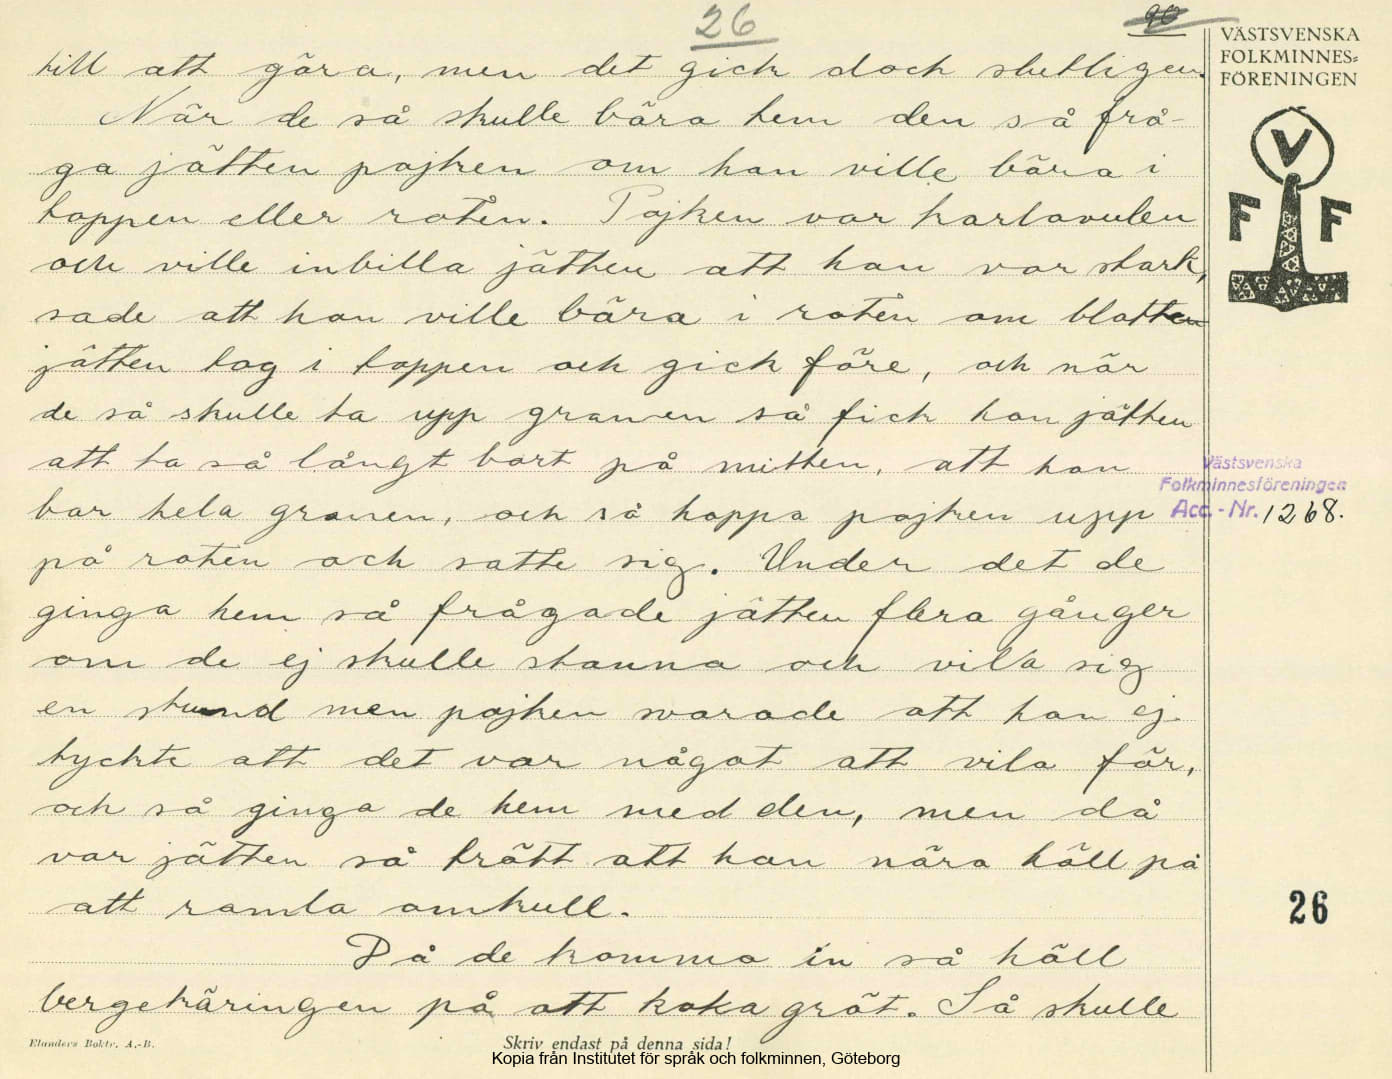 26
90
VÄSTSVENSKA
FOLKMINNES-
FÖRENINGEN
V
F F
till att göra, men det gick doch slutligen.
När de så skulle bära hem den så frå-
ga jätten pojken om han ville bära i
toppen eller roten. Pojken var karlavulen
och ville inbilla jätten att han var stark,
sade att han ville bära i roten om blott
jätten tog i toppen och gick före, och när
de så skulle ta upp granen så fick han jätten
att ta så långt bort på mitten, att han
bar hela granen, och så hoppa pojken upp
på roten och satte sig. Under det de
ginga hem så frågade jätten flera gånger
om de ej skulle stanna och vila sig
en stund men pojken svarade att han ej
tyckte att det var något att vila för,
och så ginga de hem med den, men då
var jätten så trött att han nära höll på
att ramla omkull.
Då de komma in så höll
bergekäringen på att koka gröt. Så skulle
Västsvenska
Folkminnesföreningen
Acc.-Nr. 1268.
26
Elanders Boktr. A.-B.
Skriv endast på denna sida!
Kopia från Institutet för språk och folkminnen, Göteborg